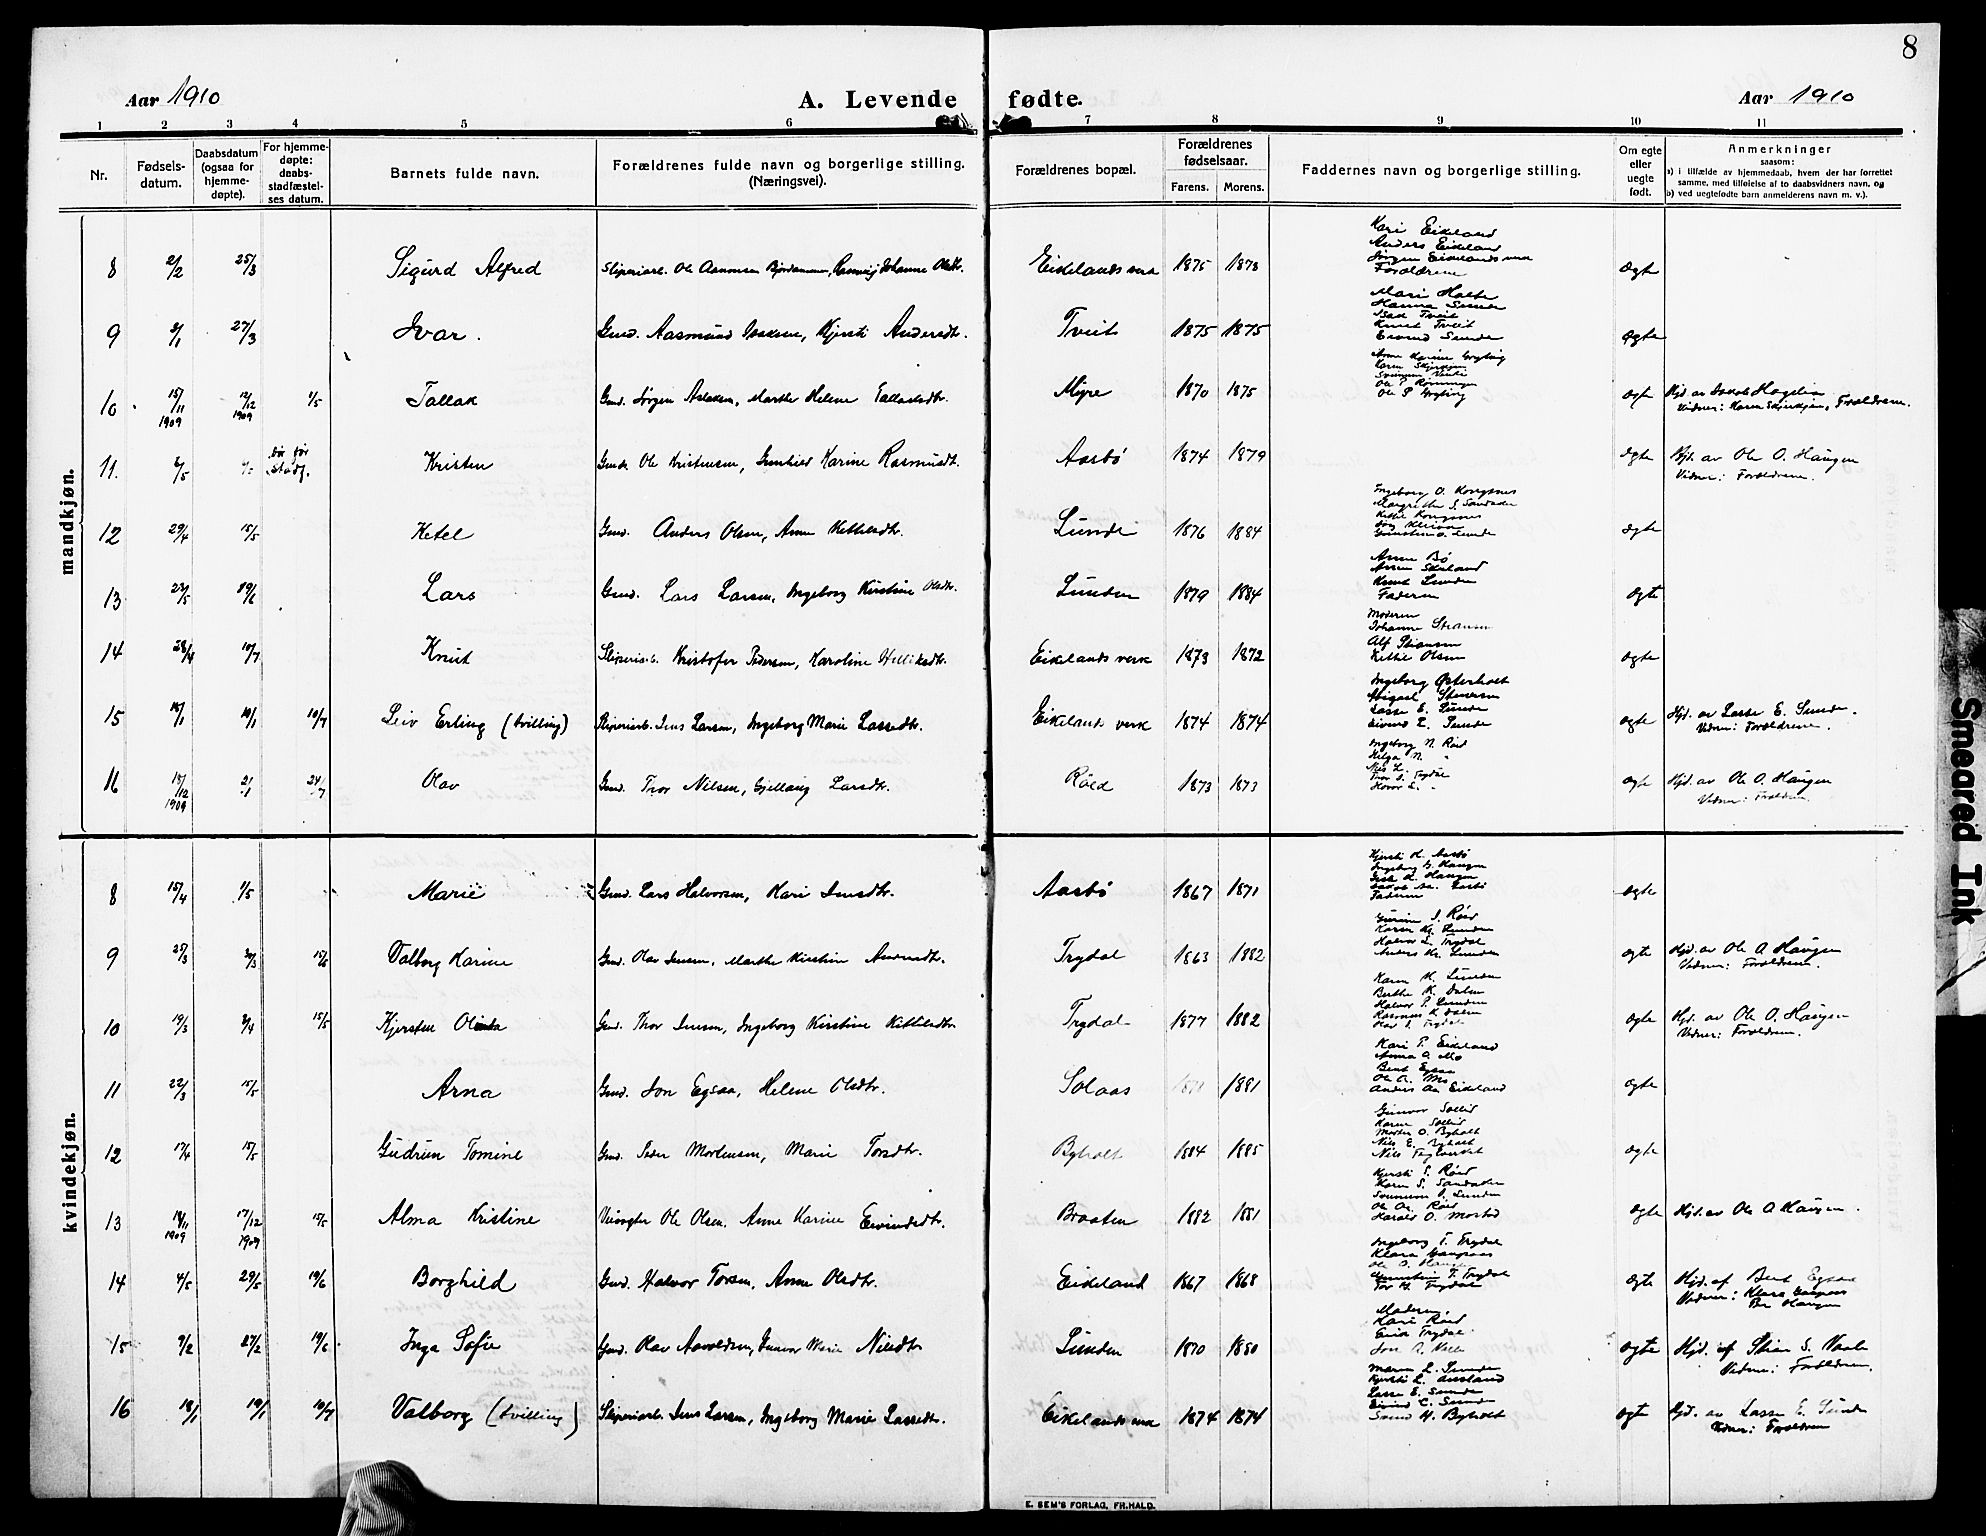 8
Aar 1910
A. Levende fødte.
Aar 1910
1 2 3 4 5 6 7 8 9 10 11
Nr.
Fødsels-
datum.
Daabsdatum
(ogsaa for
hjemme-
døpte).
For hjemme-
døpte:
daabs-
stadfæstel-
ses datum.
Barnets fulde navn.
Forældrenes fulde navn og borgerlige stilling.
(Næringsvei).
Forældrenes bopæl.
Forældrenes
fødselsaar.
Farens. Morens.
Faddernes navn og borgerlige stilling.
Om egte
eller
uegte
født.
Anmerkninger
saasom:
a) i tilfælde av hjemmedaab, hvem der har forrettet
samme, med tilføielse af to daabsvidners navn, og
b) ved uegtefødte barn anmelderens navn m. v.).
mandkjøn.
8 2/2 25/3 Sigurd Alfred Sliperiarb. Ole Aanonsen Johanne Olsdtr. Eikelandsverk 1875 1873 ægte
Kari Eikeland
Anders Eikeland
Jørgen Eikelandsverk
Forældrene
9 27/3 Ivar. Gmd. Aasmund Isaksen, Kjersti Andersdtr. Tveit 1875 1875 ægte
Mari Holte
Hanna Sunde
Isak Tveit
Knut Tveit
Eivind Sunde
10 15/11 1909 12/12 1909 1/5 Tallak Gmd. Jørgen Aslaksen, Marthe Helene Tallaksdtr. Myre 1870 1875 ægte
Ole P. Rønningen
Ole P. Grytnig
Hjd. av Jakob Hagelia
Vidner: Karen Skjerkjøn, Forældrene.
11. /5 /5 dør før
stadf.
Kristen Gmd. Ole Kristensen, Gunhild Karine Rasmusdt. Aasbø 1874 1879 ægte
Hjd. av Ole O. Haugen
Vidner: Forældrene.
12 29/4 15/5 Ketel Gmd. Anders Olsen, Anne Kittelsdtr. Lunde 1876 1884 ægte
Ingeborg O. Kongsnes
Kittel Kongsnes
13 23/5 19/6 Lars Gmd. Lars Larsen, Ingeborg Kirstine Olsdtr. Lunden 1879 1884 ægte
Anne Bø
Anne Eikeland
Knut Lunden
Faderen
Moderen
14 28/4 10/7 Knut Sliperiarb. Kristofer Pedersen, Karoline Eikelandsverk 1873 1872 ægte
Johanne Stiansen
Alf Stiansen
Kittil Olsen
15 18/1 19/1 10/7 Leiv Erling (tvilling) Sliperiarb. Jens Larsen, Ingeborg Marie Lassedtr. Eikelandsverk 1874 1874 ægte
Ingeborg Østerholt
Abigael Stensen
Lasse E. Sunde
Eivind L. Sunde
Hjd. av Lasse E. Sunde.
Vidner: Forældrene.
16 15/12 1909 2/1 24/7 Olav Gmd. Tor Nilsen, Gjellaug Larsdtr. Røed 1873 1873 ægte
Ingeborg N. Røed
Helga N. "
Nils L. "
Tor J. Trydal
Hjd. av Ole O. Haugen
Vidner: Forældrene.
kvindekjøn.
8 15/4 1/5 Marie Gmd. Lars Halvorsen, Kari Jensdtr. Aasbø 1867 1871 ægte
Kjersti K. Aasbø
Ingeborg G. Haugen
Faderen
9 25/3 15/5 Valborg Karine Gmd. Olav Jensen, Marthe Kirstine Trydal 1863 1882 ægte
Karen Kr. Lunden
Halvor L. Trydal
Anders Kr. Lunden
Hjd. av Ole O. Haugen
Vidner: Forældrene.
10 19/3 15/5 Kjersten Gmd. Thor Jensen, Ingeborg Kirstine Kittilsdtr. Trydal 1877 1882 ægte
Karen K. Lunden
Berthe K. Dalen
Halvor P. Lunden
Rasmus K. Dalen
Olav J. Trydal
Hjd. av Ole O. Haugen
Vidner: Forældrene.
11 22/3 15/5 Arna Gmd. Jon Egsaa, Helene Olsdtr. Solaas 1881 ægte
Kari P. Eikeland
Anna O. Mo
Bent Egsaa
Ole A. Mo
Anders Aa. Eikeland
12 17/4 15/5 Gudrun Tomine Gmd. Peder Mortensen, Marie Torsdtr. Byholt 1884 1885 ægte
Gunvor Sollid
Karen Sollid
Morten O. Byholt
Nils E. Byholt
13 18/11 1909 17/12 1909 15/5 Alma Kristine Ole Olsen, Anne Karine Eivindsdtr. Braaten 1882 1881 ægte
Kjersti S. Røed
Karen S. Sandaker
O. Lunden
Harald O. Mostad
Hjd. av Ole O. Haugen.
14 4/5 29/5 19/6 Borghild Gmd. Halvor Torsen, Anne Olsdtr. Eikeland 1867 1868 ægte
Ingeborg T. Trydal
Klara Gaupaas
Ole O. Haugen
T. Trydal
Tor H. Trydal
Hjd. af Bent Egsaa
Vidner: Klara Gaupaas
Ole Haugen
15 9/2 27/2 19/6 Inga Sofie Gmd. Olav Aavoldsen, Gunvor Marie Nilsdtr. Lunden 1870 1880 ægte
Moderen,
Kari Røed
Erik Trydal
Hjd. af Stian S. Vaale
Vidner: Forældrene.
16 18/1 19/1 10/7 Valborg (tvilling) Sliperiarb. Jens Larsen, Ingeborg Marie Lassedtr. Eikelandsverk 1874 1874 ægte
Maren L. Sunde
Kjersti L. Ausland
Lasse E. Sunde
Eivind L. Sunde
Svend H. Byholt
Hjd. av Lasse E. Sunde
Vidner: Forældrene
E. SEM'S FORLAG, FR.HALD.
Smeared Ink